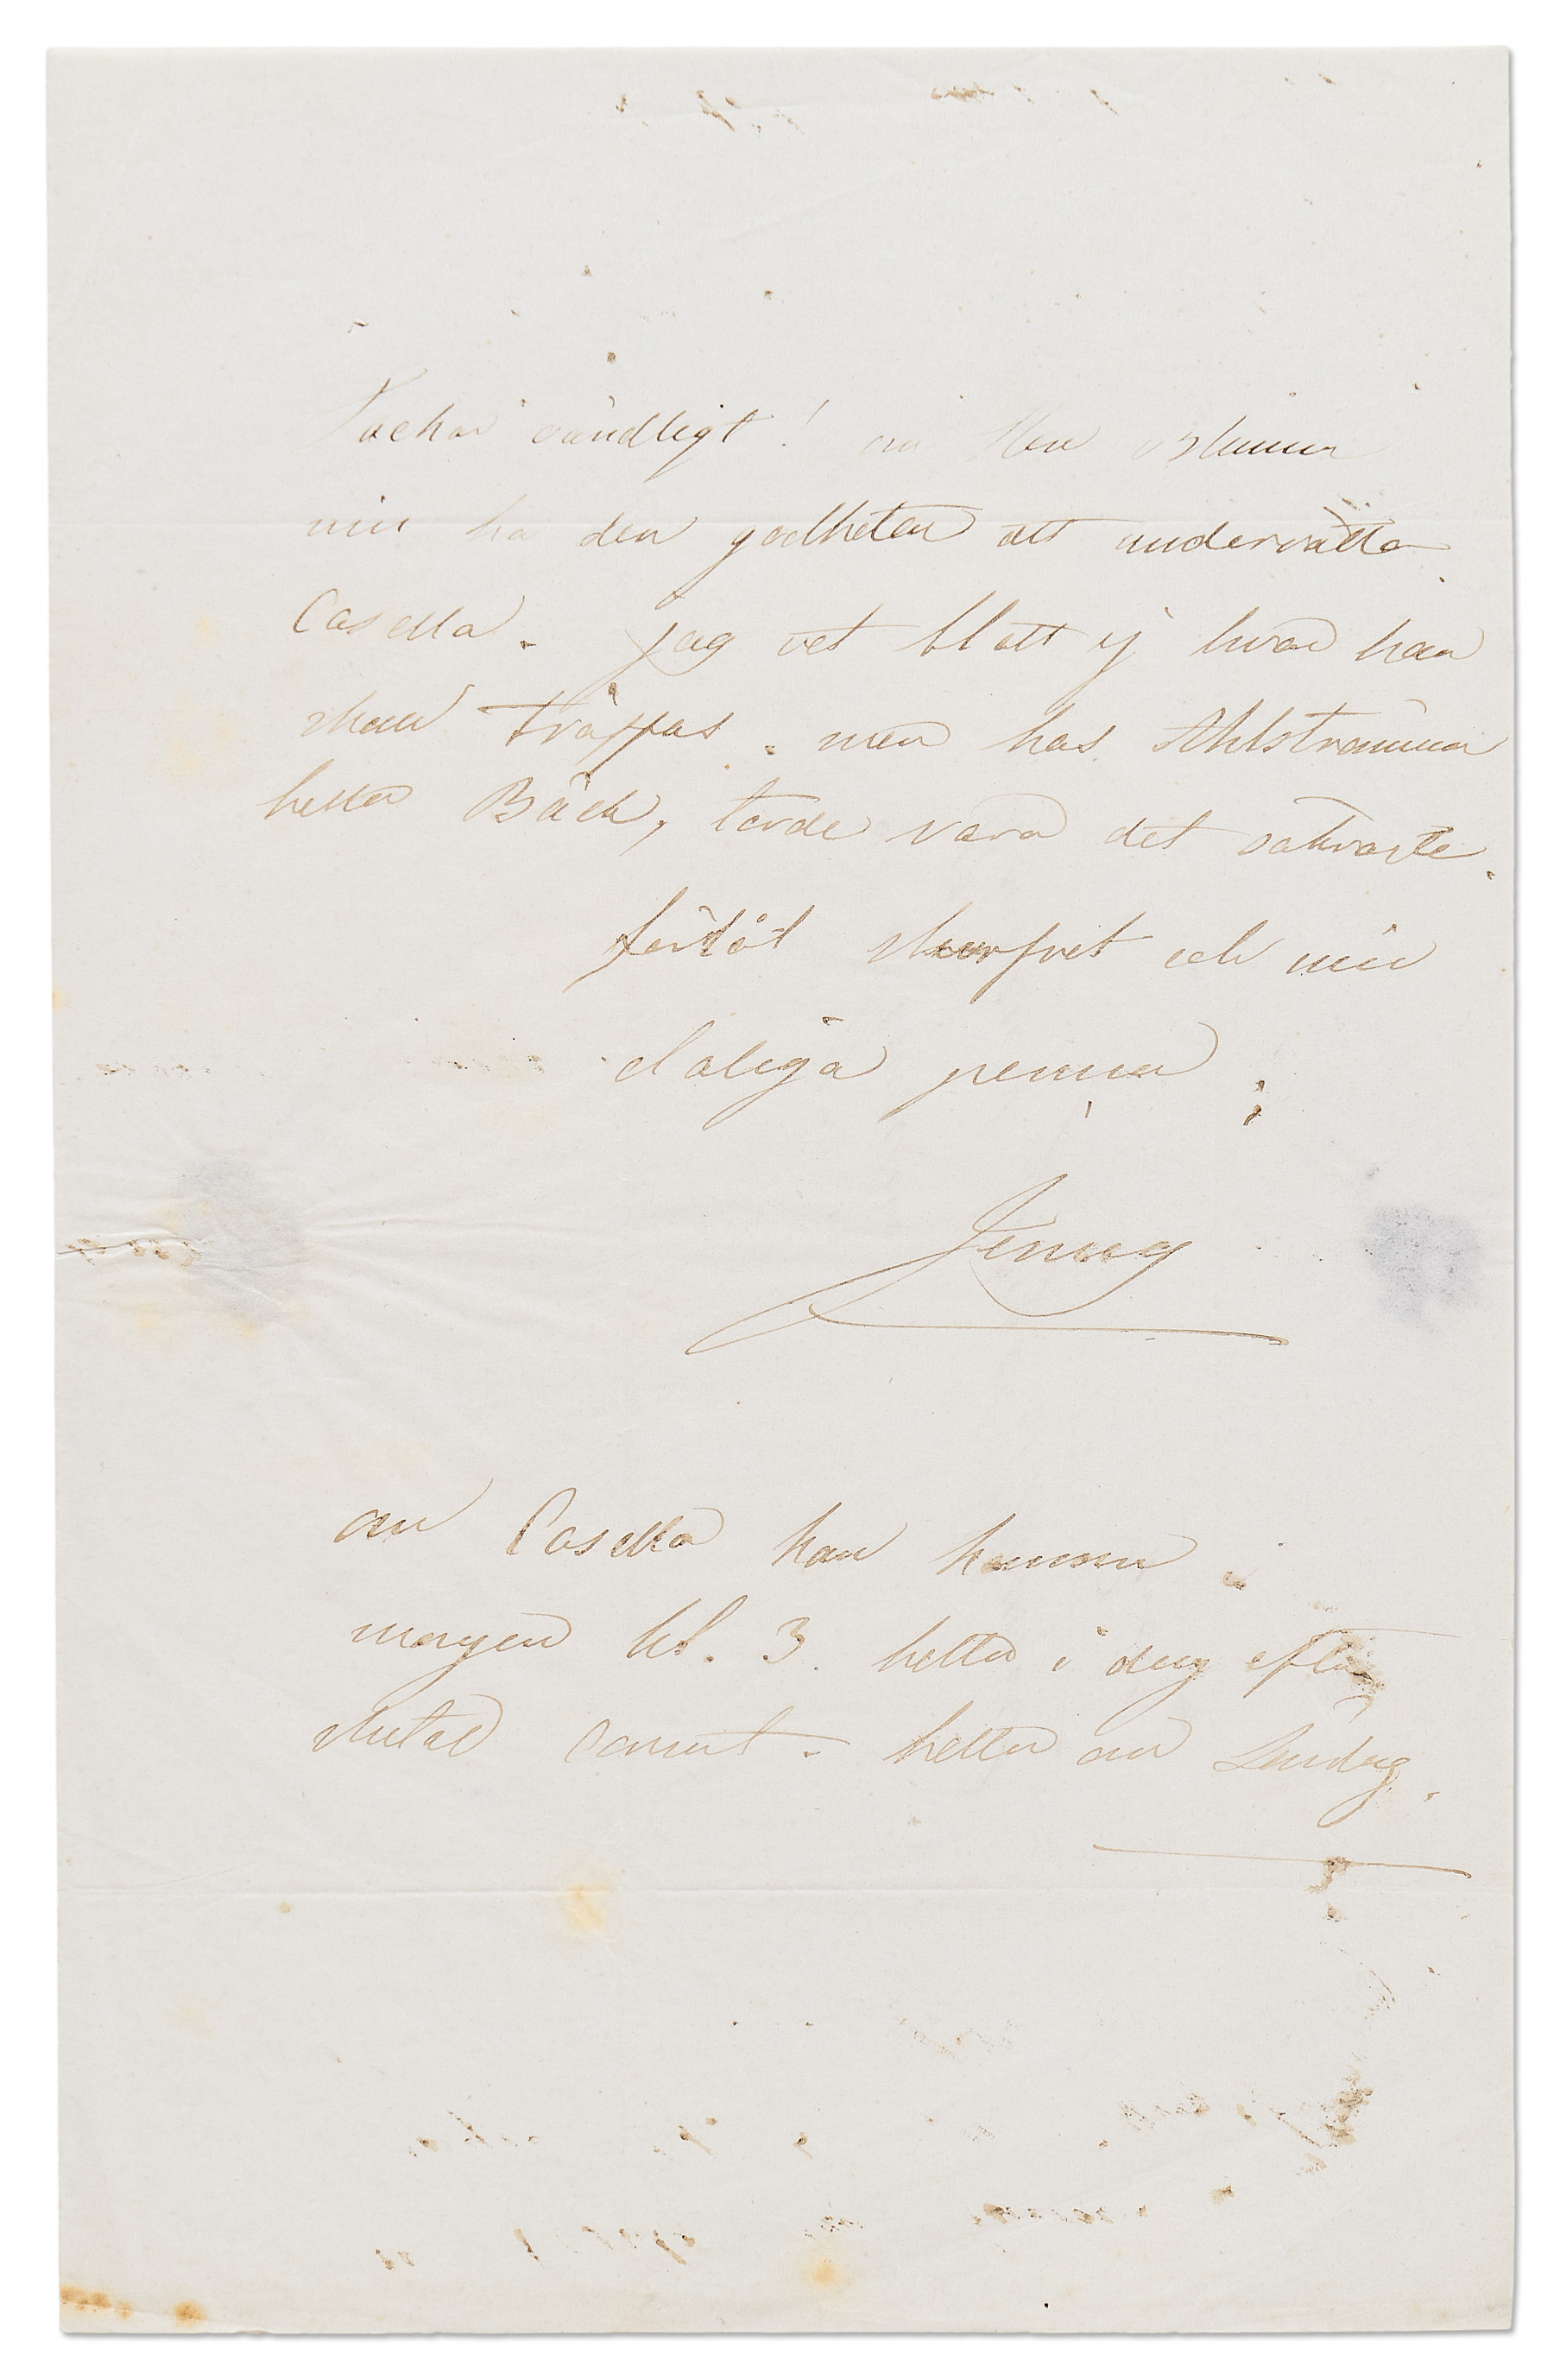 Tackar oändligt! om Herr
min ha den godheten att underrätta
Casella. jag vet blott ej hvar han
skall träffas. men hos Ahlströmmen
heller Bäck, torde vara det säkraste.
förlåt skurfvet och min
daliga penna;
Jenny
om Casella kan komma i
morgon kl. 3. heller i dag efter
slutad concert. heller om Söndag.